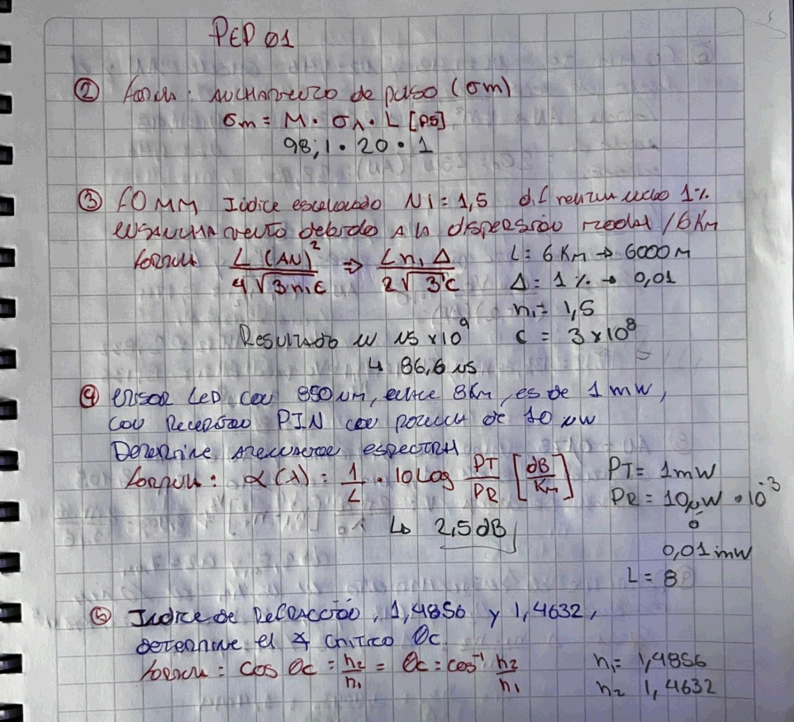 PEP 01
② form: ensanchamiento de pulso (σm)
σm = M · σλ · L [ps]
98,1 · 20 · 1
③ FO MM Indice escalonado N1 = 1,5 dif 1%
ensanchamiento debido a la dispersión modal /6 Km
L (AN)² / 4√3 n1 c ⇒ L n1 Δ / 2√3 c L = 6 Km → 6000 M
Δ = 1% → 0,01
n1 = 1,5
Resultado ns x10⁹ c = 3x10⁸
↳ 86,6 ns
④ emisor LED con 850 nm, enlace 8Km, es de 1 mw,
con Receptor PIN con de 10 μw
Determine espectral
formula: α(λ) = 1/L · 10 Log PT/PR [dB/Km] PT = 1mW
PR = 10μW · 10⁻³
↳ 2,5 dB ó
0,01 mw
L = 8
Indice de Refracción, 1,4856 y 1,4632,
determine el ∡ critico θc
form: cos θc = n2/n1 = θc = cos⁻¹ n2/n1 n1 = 1,4856
n2 1,4632